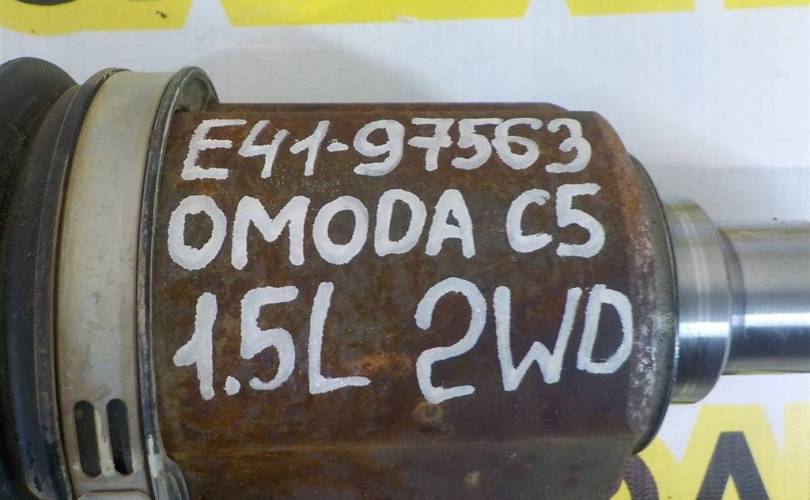 E41-97563
OMODA C5
1.5L 2WD